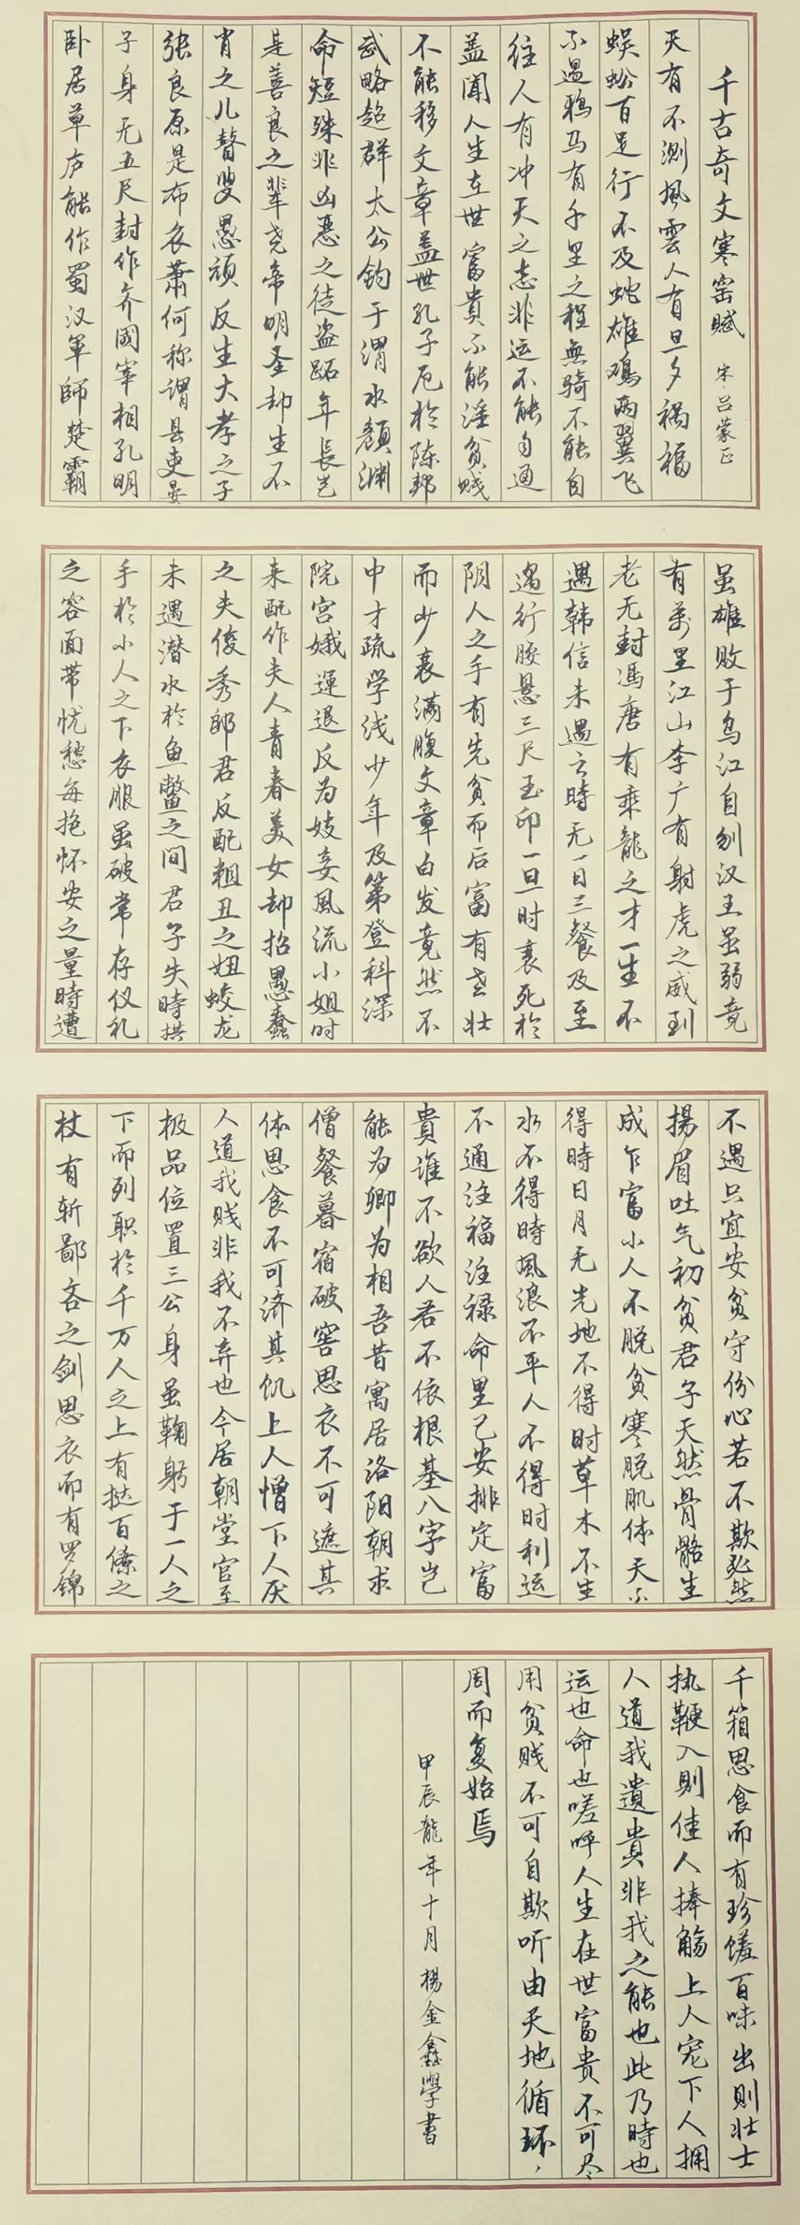 千古奇文寒窑赋 宋·吕蒙正
天有不测風雲人有旦夕禍福
蜈蚣百足行不及蛇雄鸡两翼飞
不過鸦马有千里之程無骑不能自
往人有冲天之志非运不能自通
盖闻人生在世富貴不能淫贫贱
不能移文章盖世孔子厄於陈邦
武略超群太公钓于渭水颜渊
命短殊非凶恶之徒盗跖年長岂
是善良之辈尧帝明圣却生不
肖之儿瞽叟愚顽反生大孝之子
張良原是布衣萧何称谓县吏晏
子身无五尺封作齐國宰相孔明
卧居草庐能作蜀汉軍師楚霸
虽雄败于乌江自刎汉王虽弱竟
有萬里江山李广有射虎之威到
老无封馮唐有乘龍之才一生不
遇韩信未遇之時无一日三餐及至
遇行腰悬三尺玉印一旦时衰死於
阴人之手有先贫而后富有老壮
而少衰满腹文章白发竟然不
中才疏学浅少年及第登科深
院宫娥運退反为妓妾風流小姐时
来配作夫人青春美女却招愚蠢
之夫俊秀郎君反配粗丑之妞蛟龙
未遇潜水於鱼鳖之间君子失時拱
手於小人之下衣服虽破常存仪礼
之容面带忧愁每抱怀安之量時遭
不遇只宜安贫守份心若不欺必然
揚眉吐气初贫君子天然骨骼生
成乍富小人不脱贫寒脱肌体天不
得時日月无光地不得时草木不生
水不得時風浪不平人不得时利运
不通注福注禄命里已安排定富
貴谁不欲人若不依根基八字岂
能为卿为相吾昔寓居洛阳朝求
僧餐暮宿破窖思衣不可遮其
体思食不可济其饥上人憎下人厌
人道我贱非我不弃也今居朝堂官至
极品位置三公身虽鞠躬于一人之
下而列职於千万人之上有挞百僚之
杖有斩鄙吝之剑思衣而有罗锦
千箱思食而有珍馐百味出则壮士
执鞭入则佳人捧觞上人宠下人拥
人道我遗貴非我之能也此乃時也
运也命也嗟呼人生在世富贵不可尽
用贫贱不可自欺听由天地循环，
周而复始焉
甲辰龍年十月楊金鑫學書